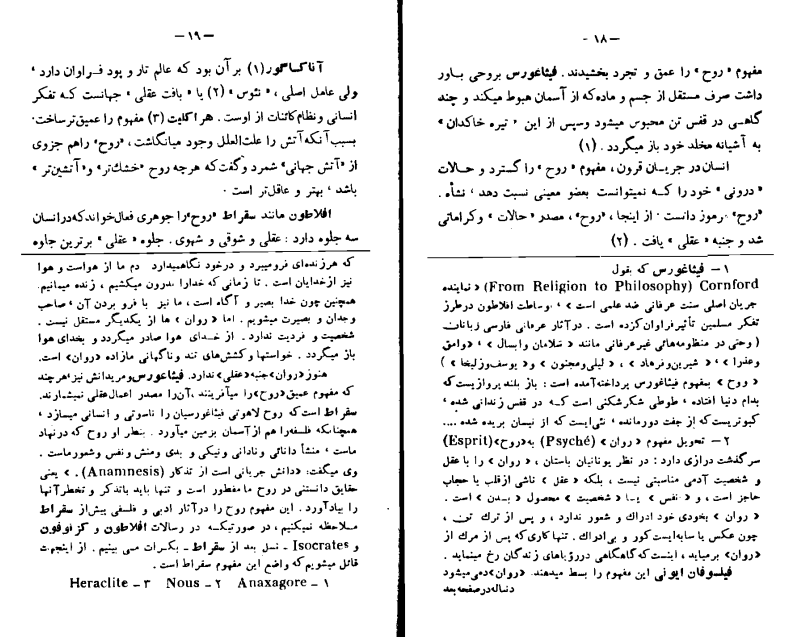 — ۱۸ -
مفهوم «روح» را عمق و تجرد بخشیدند. فیثاغورس بروحی باور
داشت صرف مستقل از جسم و ماده که از آسمان هبوط میکند و چند
گاهی در قفس تن محبوس میشود وسپس از این «تیره خاکدان»
به آشیانه مخلد خود باز میگردد. (۱)
انسان در جریان قرون، مفهوم «روح» را گسترد و حالات
«درونی» خود را که نمیتوانست بعضو معینی نسبت دهد، نشأه
«روح» مرموز دانست. از اینجا، «روح»، مصدر «حالات» وکراماتی
شد و جنبه «عقلی» یافت. (۲)
۱ – فیثاغورس که بقول
From Religion to Philosophy) Cornford) «نماینده
جریان اصلی سنت عرفانی ضد علمی است»، بوساطت افلاطون درطرز
تفکر مسلمین تأثیر فراوان کرده است. درآثار عرفانی فارسی زبانان
(وحتی در منظومه‌هائی غیرعرفانی مانند «سلامان وابسال»، «وامق
وعذرا»، «شیرین‌وفرهاد»، «لیلی‌ومجنون» و «یوسف‌وزلیخا»)
«روح» بمفهوم فیثاغورس پرداخته‌آمده است: باز بلند پروازیست‌که
بدام دنیا افتاده، طوطی شکرشکنی است کـه در قفس زندانی شده،
کبوتریست‌که از جفت دورمانده، نئی‌ایست که از نیستان بریده شده ....
۲ – تحویل مفهوم «روان» (Psyché) به«روح»(Esprit)
سرگذشت درازی دارد: در نظر یونانیان باستان، «روان» را با عقل
و شخصیت آدمی مناسبتی نیست، بلکه «عقل» ناشی ازقلب یا حجاب
حاجز است، و «نفس» یـا «شخصیت» محصول «بـدن» است.
«روان» بخودی خود ادراک و شعور ندارد، و پس از ترک تن،
چون عکس یا سایه‌ایست کور و بی‌ادراک. تنها کاری‌که پس از مرگ از
«روان» برمیاید، اینست‌که گاهگاهی دررؤیاهای زندگان رخ مینماید.
فیلسوفان ایونی این مفهوم را بسط میدهند. «روان»دمی میشود
دنباله درصفحه بعد
— ۱۹ —
آناکساگور(۱) بر آن بود که عالم تار و پود فراوان دارد،
ولی عامل اصلی، «نئوس» (۲) یا «بافت عقلی» جهانست کـه تفکر
انسانی و نظام‌کائنات از اوست. هراکلیت (۳) مفهوم را عمیق‌ترساخت.
بسبب آنکه آتش را علت‌العلل وجود میانگاشت، «روح» راهم جزوی
از «آتش جهانی» شمرد وگفت‌که هرچه روح «خشك‌تر» و«آتشین‌تر»
باشد، بهتر و عاقل‌تر است.
افلاطون مانند سقراط «روح»را جوهری فعال‌خواند که درانسان
سه جلوه دارد: عقلی و شوقی و شهوی. جلوه «عقلی» برترین جلوه
که هرزنده‌ای فرومیبرد و درخود نگاهمیدارد دم ما از هواست و هوا
نیز ازخدایان است. تا زمانی که خدارا بدرون میکشیم، زنده میمانیم.
همچنین چون خدا بصیر و آگاه است، ما نیز با فرو بردن آن، صاحب
وجدان و بصیرت میشویم. اما «روان» ها از یکدیگر مستقل نیست.
شخصیت و فردیت ندارد. از خـدای هوا صادر میگردد و بخدای هوا
باز میگردد. خواستها وکشش‌های تند وناگهانی مازاده «روان» است.
هنوز«روان»جنبه«عقلی» ندارد. فیثاغورس‌ومریدانش نیز، هرچند
که مفهوم عمیق«روح»را میآفرینند، آن‌را مصدر اعمال‌عقلی نمیشمارند.
سقراط است‌که روح لاهوتی فیثاغورسیان را ناسوتی و انسانی میسازد،
همچنانکه فلسفه‌را هم ازآسمان بزمین میآورد. بنظر او روح که درنهاد
ماست، منشأ دانائی ونادانی ونیکی و بدی ومنش ونفس وشعورماست.
وی میگفت: «دانش جریانی است از تذکار (Anamnesis).» یعنی
حقایق دانستنی در روح ما مفطور است و تنها باید باتذکر و تخطرآنها
را بیادآورد. این مفهوم روح را درآثار ادبی و فلسفی پیش‌از سقراط
ملاحظه نمیکنیم، در صورتیکـه در رسالات افلاطون و کزنوفون
و Isocrates ـ نسل بعد از سقراط ـ بکرات مـی بینیم. از اینجهت
قائل میشویم‌که واضع این مفهوم سقراط است.
۱ – Anaxagore   ۲ – Nous   ۳ – Heraclite